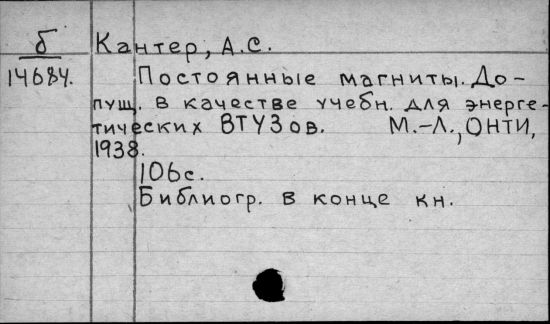 б Кантер, А.С.
14684. Постоянные магниты. До-
пущ. в качестве учебн. для энерге-
тических ВТУЗов. М.-Л., ОНТИ,
1938.
106с.
Библиогр. в конце кн.